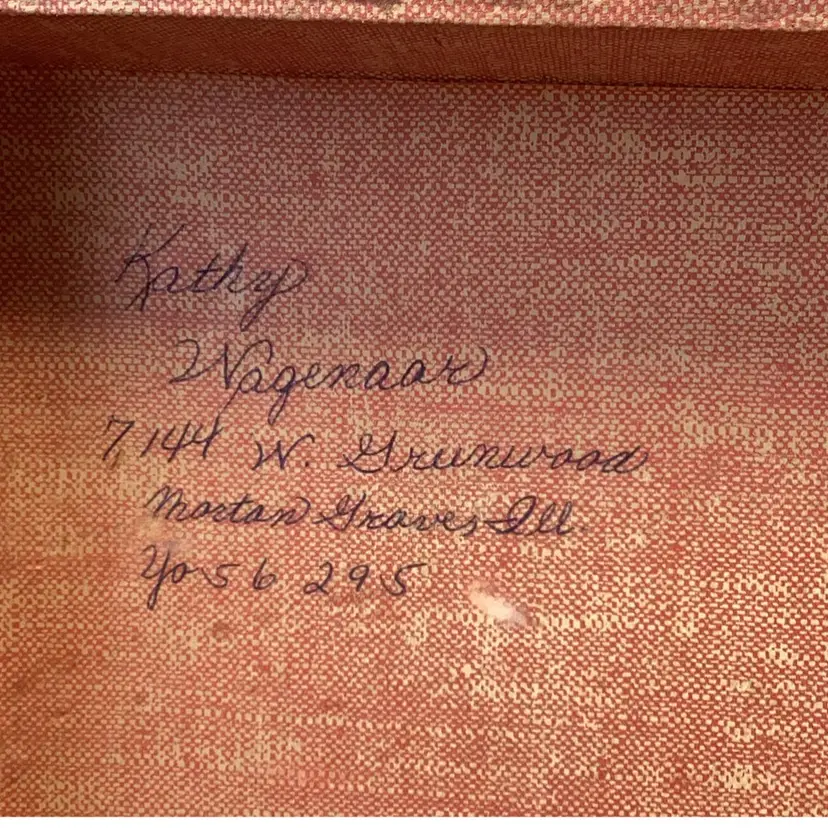 Kathy
Wagenaar
7144 W. Grunwood
Morton Groves Ill.
Yo 5 6 295